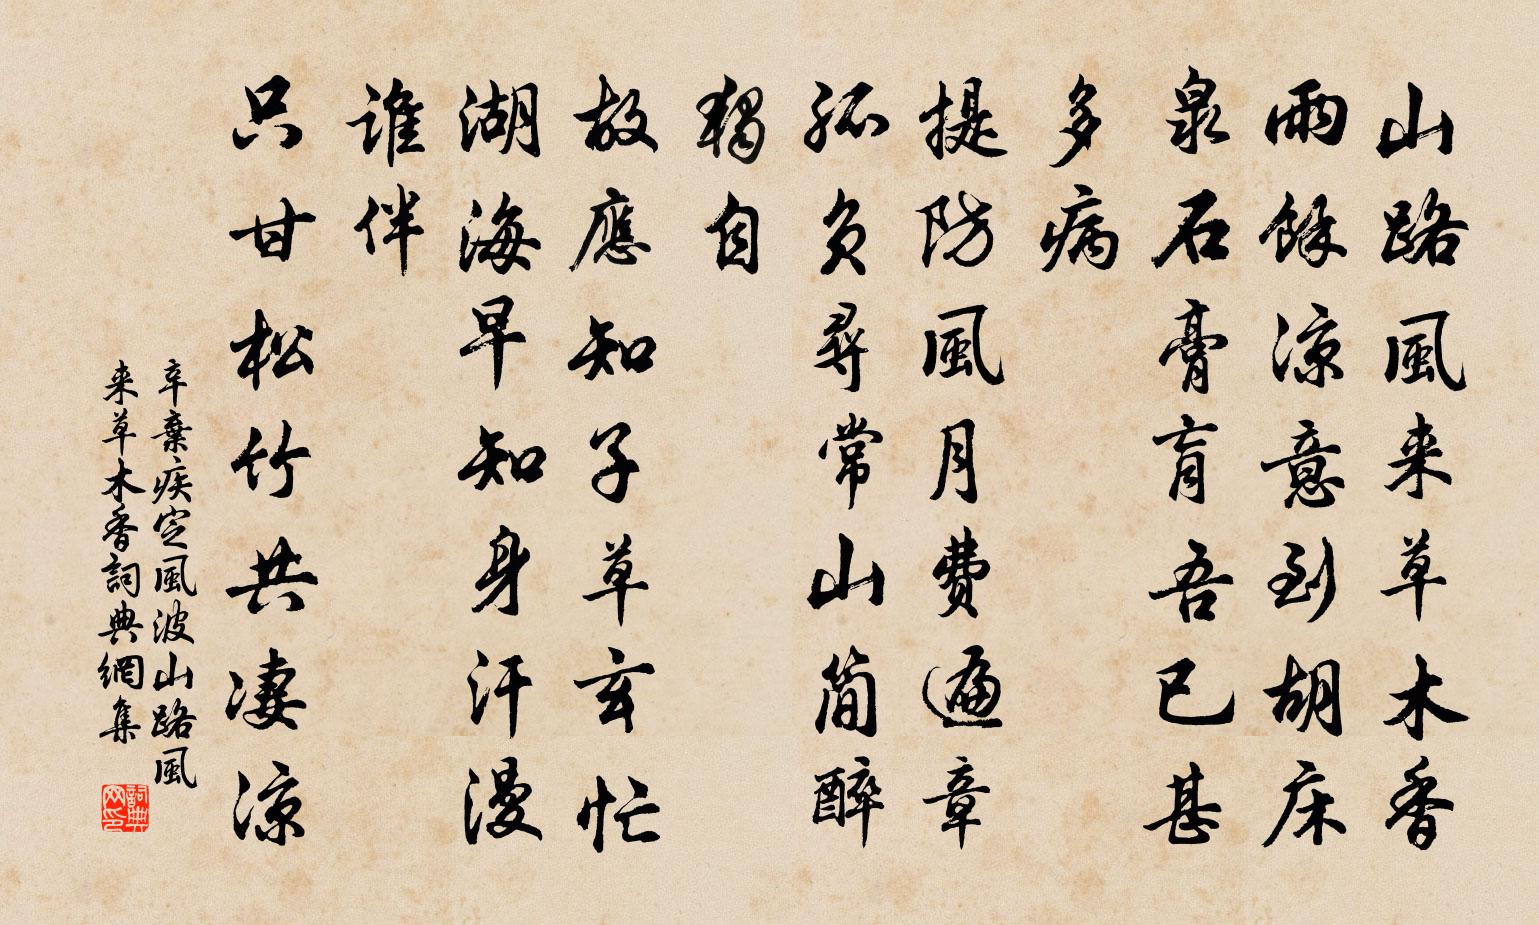 山路風来草木香
雨餘涼意到胡床
泉石膏肓吾已甚
多病
提防風月費遍章
孤負尋常山簡醉
獨自
故應知子草玄忙
湖海早知身汗漫
誰伴
只甘松竹共凄涼
辛棄疾定風波山路風
来草木香詞典網集
詞典网印